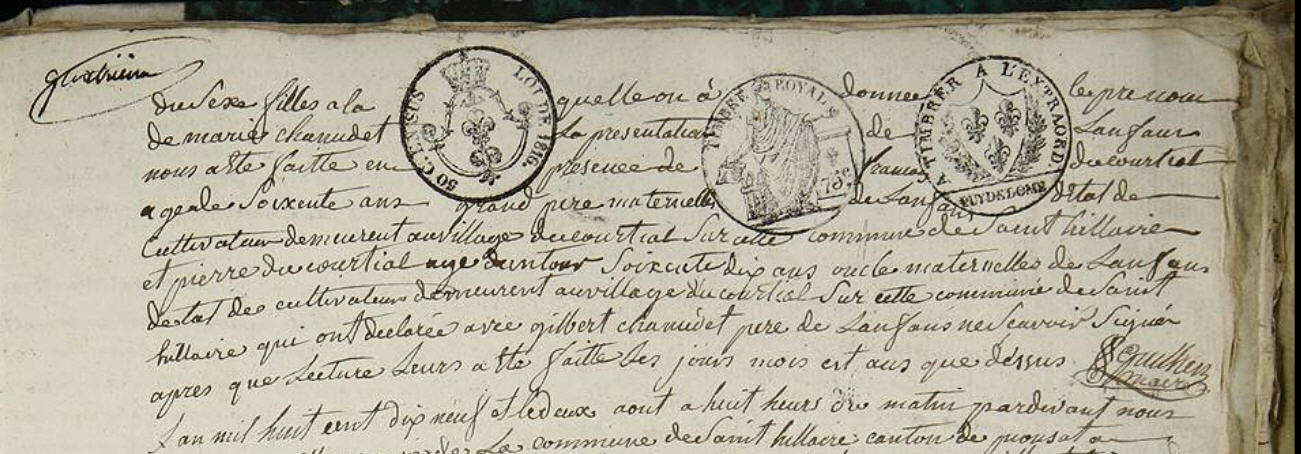 du sexe filles a la quelle on à donnee le prenom
de marie chanudet La presentation de Lanfans
nous a ete faitte en presence de francois ducourtial
agee de Soixente ans grand pere maternelle de Lanfans d'état de
Cultivateur demeurent au village ducourtial Sur cette commune de Saint hillaire
et pierre du courtial age denviron Soixente dix ans oncle maternelles de Lanfans
detat de cultivateur demeurent au village ducourtial Sur cette commune de Saint
hillaire qui ont declarée avec gilbert chanudet pere de Lanfans ne Scavoir Signér
apres que Lecture Leurs a ete faitte Les jours mois est ans que déssus
maire
Lan mil huit cent dix neuf et le deux aout a huit heurs du matin pardevant nous
La commune de Saint hillaire canton de pionsat a
50 C. EN SUS
LOI DE 1816.
TIMBRE ROYAL
75c
A TIMBRER A L'EXTRAORD
PUY DE DOME